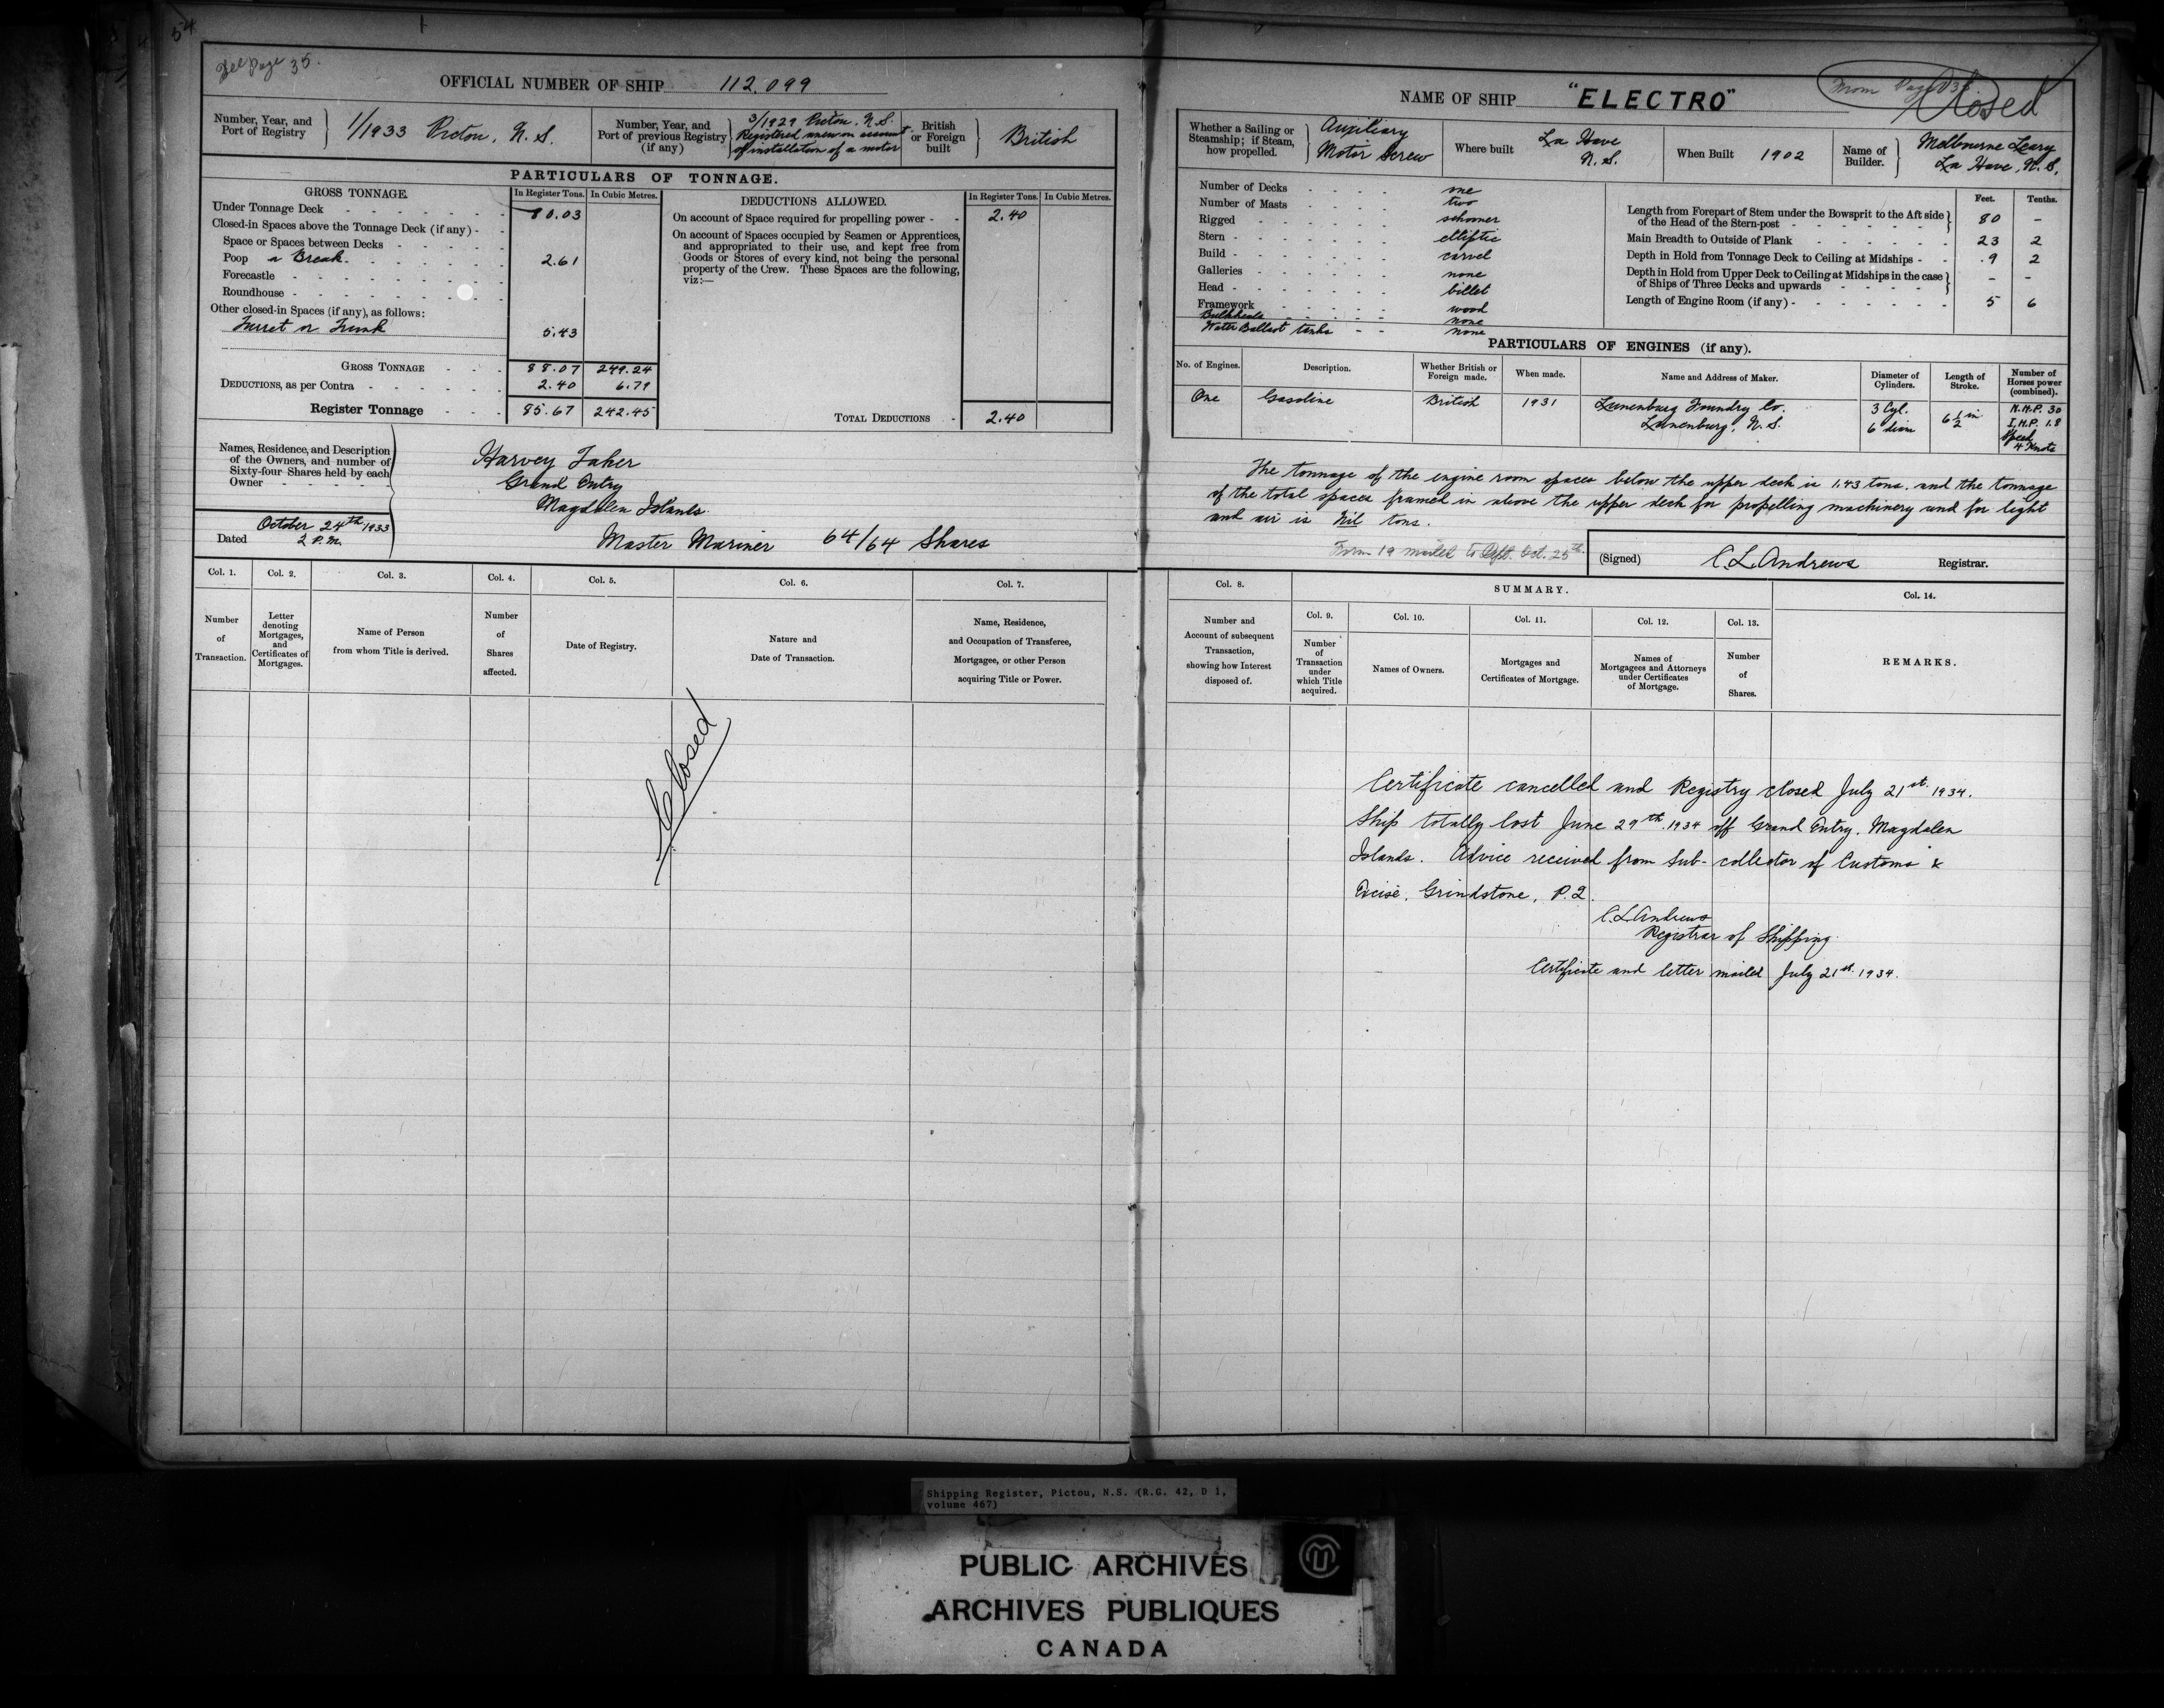 54
See Page 35.
OFFICIAL NUMBER OF SHIP 112.099
Number, Year, and Port of Registry
1/1933 Pictou, N.S.
Number, Year, and Port of previous Registry (if any)
3/1929 Pictou, N.S.
Registered anew on account
of installation of a motor
British or Foreign built
British
PARTICULARS OF TONNAGE.
GROSS TONNAGE.
In Register Tons. In Cubic Metres.
Under Tonnage Deck 80.03
Closed-in Spaces above the Tonnage Deck (if any)
Space or Spaces between Decks
Poop or Break. 2.61
Forecastle
Roundhouse
Other closed-in Spaces (if any), as follows:
Turret or Trunk 5.43
GROSS TONNAGE 88.07 249.24
DEDUCTIONS, as per Contra 2.40 6.79
Register Tonnage 85.67 242.45
DEDUCTIONS ALLOWED.
In Register Tons. In Cubic Metres.
On account of Space required for propelling power 2.40
On account of Spaces occupied by Seamen or Apprentices,
and appropriated to their use, and kept free from
Goods or Stores of every kind, not being the personal
property of the Crew. These Spaces are the following,
viz:—
TOTAL DEDUCTIONS 2.40
Names, Residence, and Description
of the Owners, and number of
Sixty-four Shares held by each
Owner
Harvey Taker
Grand Entry
Magdalen Islands.
Master Mariner 64/64 Shares
Dated October 24th 1933
2 P.M.
Col. 1. Col. 2. Col. 3. Col. 4. Col. 5. Col. 6. Col. 7.
Number of Transaction.
Letter denoting Mortgages, and Certificates of Mortgages.
Name of Person from whom Title is derived.
Number of Shares affected.
Date of Registry.
Nature and Date of Transaction.
Name, Residence, and Occupation of Transferee, Mortgagee, or other Person acquiring Title or Power.
Closed
From Page 35.
Closed
NAME OF SHIP "ELECTRO"
Whether a Sailing or Steamship; if Steam, how propelled.
Auxiliary
Motor Screw
Where built
La Have
N.S.
When Built 1902
Name of Builder.
Melbourne Leary
La Have, N.S.
Number of Decks one
Number of Masts two
Rigged schooner
Stern elliptic
Build carvel
Galleries none
Head billet
Framework wood
Bulkheads none
Water Ballast tanks none
Feet. Tenths.
Length from Forepart of Stem under the Bowsprit to the Aft side
of the Head of the Stern-post 80 –
Main Breadth to Outside of Plank 23 2
Depth in Hold from Tonnage Deck to Ceiling at Midships .9 2
Depth in Hold from Upper Deck to Ceiling at Midships in the case
of Ships of Three Decks and upwards – –
Length of Engine Room (if any) 5 6
PARTICULARS OF ENGINES (if any).
No. of Engines. Description. Whether British or Foreign made. When made. Name and Address of Maker. Diameter of Cylinders. Length of Stroke. Number of Horses power (combined).
One Gasoline British 1931
Lunenburg Foundry Co.
Lunenburg, N.S.
3 Cyl.
6 diam
6 1/2 in
N.H.P. 30
I.H.P. 1.8
Speed
4 Knots
The tonnage of the engine room spaces below the upper deck is 1.43 tons, and the tonnage
of the total spaces framed in above the upper deck for propelling machinery and for light
and air is Nil tons.
Form 19 mailed to Dept. Oct. 25th
(Signed) C.L. Andrews Registrar.
Col. 8.
Number and Account of subsequent Transaction, showing how Interest disposed of.
SUMMARY.
Col. 9. Col. 10. Col. 11. Col. 12. Col. 13.
Number of Transaction under which Title acquired.
Names of Owners.
Mortgages and Certificates of Mortgage.
Names of Mortgagees and Attorneys under Certificates of Mortgage.
Number of Shares.
Col. 14.
REMARKS.
Certificate cancelled and Registry closed July 21st. 1934.
Ship totally lost June 29th. 1934 off Grand Entry. Magdalen
Islands. Advice received from Sub-collector of Customs &
Excise. Grindstone, P.Q.
C.L. Andrews
Registrar of Shipping.
Certificate and letter mailed July 21st. 1934.
Shipping Register, Pictou, N.S. (R.G. 42, D 1,
volume 467)
PUBLIC ARCHIVES
ARCHIVES PUBLIQUES
CANADA